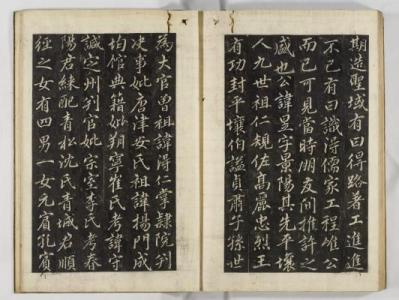 期造聖域有曰得路著工進進
不已有曰識得儒家工程雖公
而已可見當時朋友間推許之
盛也公諱昱字景陽其先平壤
人九世祖仁規佐高麗忠烈王
有功封平壤伯謚貞肅子孫世
為大官曾祖諱得仁掌隷院判
决事妣唐津安氏祖諱揚門成
均館典籍妣朔寧崔氏考諱守
諴定州判官妣宗室李氏考春
陽君練配青松沈氏青城君順
徑之女有四男一女元賓孔賓